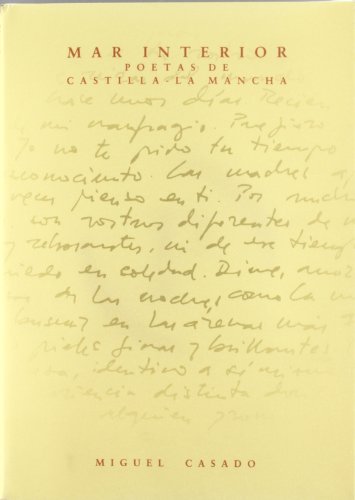 MAR INTERIOR
POETAS DE
CASTILLA LA MANCHA
hace unos días Recién
mi naufragio. Prefiero
Yo no te pido tu tiempo
conocimiento. Las madres a
veces pienso en ti. Por mucho
con rostros diferentes de
y rebosantes, ni de ese tiempo
miedo en soledad. Dime, amor
de las noches, como la
buscar en las arenas más
pieles finas y brillantes
idéntico a sí mismo
distinta
alguien
MIGUEL CASADO